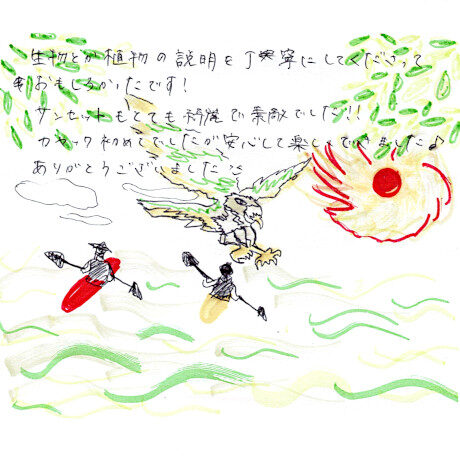 生物とか植物の説明を丁寧にしてくださって
おもしろかったです!
サンセットもとても綺麗で素敵でした!!
カヤック初めてでしたが安心して楽しくできました♪
ありがとうございました